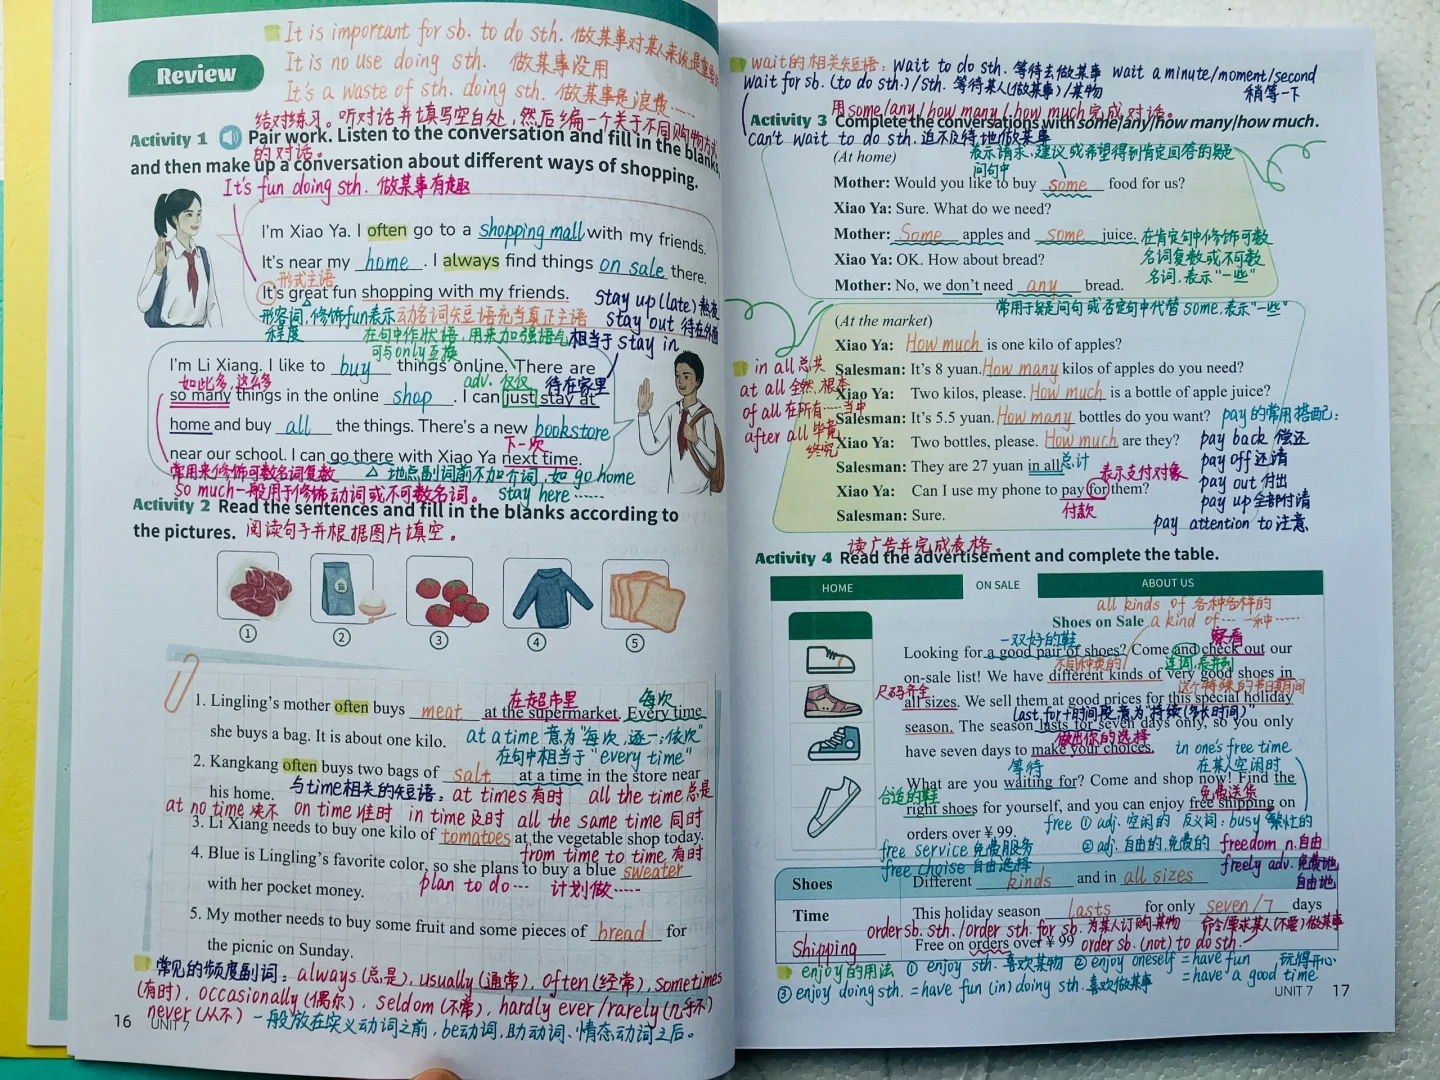 It is important for sb. to do sth. 做某事对某人来说是重要的
It is no use doing sth. 做某事没用
It's a waste of sth. doing sth. 做某事是浪费……
Review
结对练习。听对话并填写空白处，然后编一个关于不同购物方式
的对话。
Activity 1 Pair work. Listen to the conversation and fill in the blanks,
and then make up a conversation about different ways of shopping.
It's fun doing sth. 做某事有趣
I'm Xiao Ya. I often go to a shopping mall with my friends.
It's near my home. I always find things on sale there.
形式主语
It's great fun shopping with my friends.
形容词,修饰fun表示 动名词短语充当真正主语
程度
stay up (late) 熬夜
stay out 待在外面
相当于 stay in
在句中作状语,用来加强语气
可与only互换
I'm Li Xiang. I like to buy things online. There are
如此多,这么多 adv. 仅仅 待在家里
so many things in the online shop. I can just stay at
home and buy all the things. There's a new bookstore
下一次
near our school. I can go there with Xiao Ya next time.
常用来修饰可数名词复数 △ 地点副词前不加介词,如 go home
so much一般用于修饰动词或不可数名词。 stay here ……
Activity 2 Read the sentences and fill in the blanks according to
the pictures. 阅读句子并根据图片填空。
① ② ③ ④ ⑤
在超市里 每次
1. Lingling's mother often buys meat at the supermarket. Every time
she buys a bag. It is about one kilo. at a time 意为"每次,逐一;依次"
在句中相当于"every time"
2. Kangkang often buys two bags of salt at a time in the store near
his home. 与time相关的短语: at times 有时 all the time 总是
at no time 决不 on time 准时 in time 及时 all the same time 同时
3. Li Xiang needs to buy one kilo of tomatoes at the vegetable shop today.
from time to time 有时
4. Blue is Lingling's favorite color, so she plans to buy a blue sweater
with her pocket money. plan to do … 计划做……
5. My mother needs to buy some fruit and some pieces of bread for
the picnic on Sunday.
常见的频度副词: always (总是), usually (通常), often (经常), sometimes
(有时), occasionally (偶尔), seldom (不常), hardly ever/rarely (几乎不)
never (从不) 一般放在实义动词之前, be动词、助动词、情态动词之后。
16 UNIT 7
wait的相关短语: wait to do sth. 等待去做某事 wait a minute/moment/second
wait for sb. (to do sth.)/sth. 等待某人(做某事)/某物 稍等一下
用some/any/how many/how much完成对话。
Activity 3 Complete the conversations with some/any/how many/how much.
can't wait to do sth. 迫不及待地做某事
(At home) 表示请求、建议或希望得到肯定回答的疑
问句中
Mother: Would you like to buy some food for us?
Xiao Ya: Sure. What do we need?
Mother: Some apples and some juice. 在肯定句中修饰可数
Xiao Ya: OK. How about bread? 名词复数或不可数
名词,表示"一些"
Mother: No, we don't need any bread.
常用于疑问句或否定句中代替some,表示"一些"
(At the market)
Xiao Ya: How much is one kilo of apples?
Salesman: It's 8 yuan. How many kilos of apples do you need?
Xiao Ya: Two kilos, please. How much is a bottle of apple juice?
Salesman: It's 5.5 yuan. How many bottles do you want?
Xiao Ya: Two bottles, please. How much are they?
Salesman: They are 27 yuan in all. 总计
表示支付对象
Xiao Ya: Can I use my phone to pay for them?
付款
Salesman: Sure.
in all 总共
at all 全然,根本
of all 在所有……当中
after all 毕竟
终究
pay的常用搭配:
pay back 偿还
pay off 还清
pay out 付出
pay up 全部付清
pay attention to 注意
读广告并完成表格。
Activity 4 Read the advertisement and complete the table.
HOME ON SALE ABOUT US
all kinds of 各种各样的
Shoes on Sale a kind of … 一种……
一双好的鞋 察看
Looking for a good pair of shoes? Come and check out our
不同种类的 连词,表并列
on-sale list! We have different kinds of very good shoes in
尺码齐全 这个特殊的节日期间
all sizes. We sell them at good prices for this special holiday
last for+时间段 意为"持续(多长时间)"
season. The season lasts for seven days only, so you only
做出你的选择
have seven days to make your choices. in one's free time
等待 在某人空闲时
What are you waiting for? Come and shop now! Find the
合适的鞋 免费送货
right shoes for yourself, and you can enjoy free shipping on
orders over ¥99. free ① adj. 空闲的 反义词: busy 繁忙的
free service 免费服务 ② adj. 自由的,免费的 freedom n. 自由
free choise 自由选择 freely adv. 免费地
自由地
Shoes Different kinds and in all sizes
Time This holiday season lasts for only seven/7 days
order sb. sth./order sth. for sb. 为某人订购某物 命令/要求某人(不要)做某事
Shipping Free on orders over ¥99 order sb. (not) to do sth.
enjoy的用法 ① enjoy sth. 喜欢某物 ② enjoy oneself = have fun 玩得开心
③ enjoy doing sth. = have fun (in) doing sth. 喜欢做某事 = have a good time
UNIT 7 17